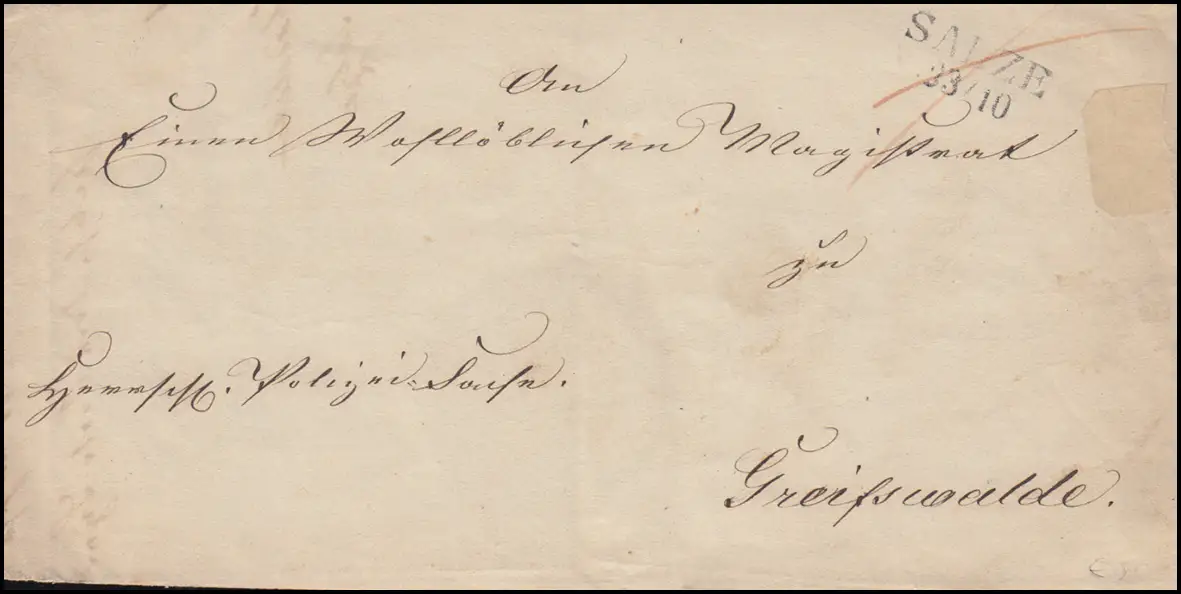 SALZE
23/10
An
Einen Wohllöblichen Magistrat
zu
Herrschl. Polizei-Sache.
Greifswalde.